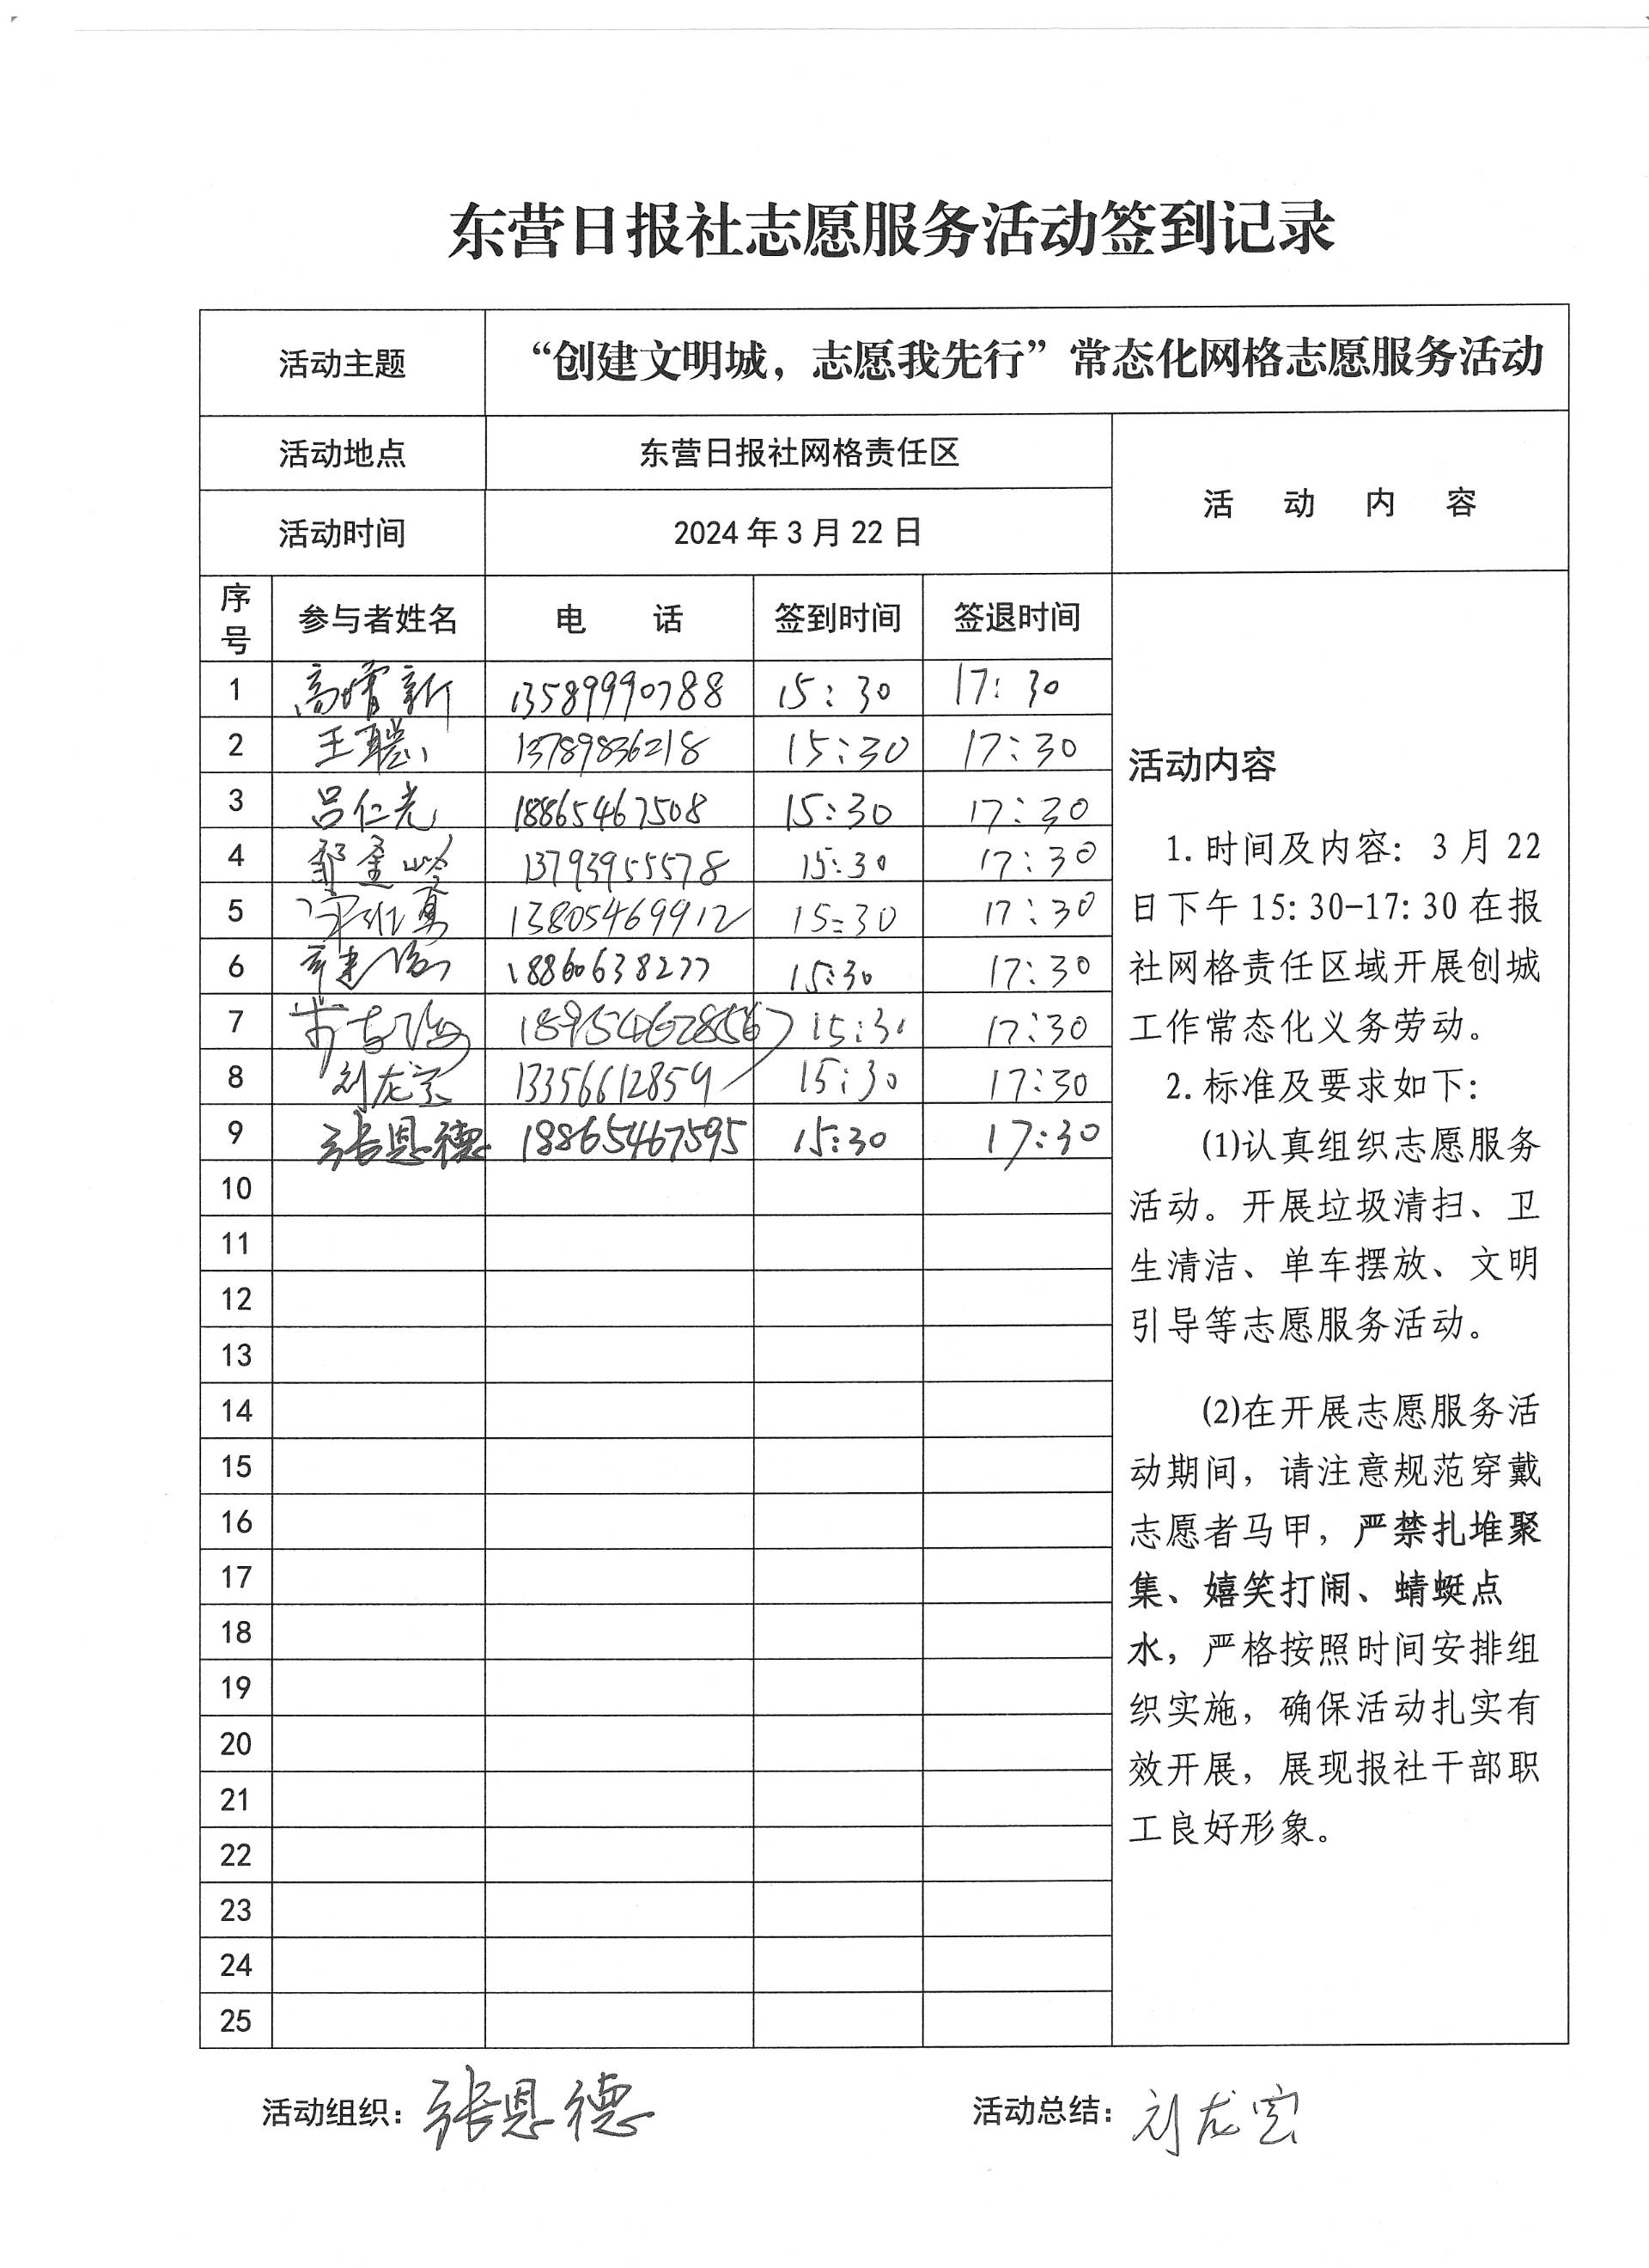 东营日报社志愿服务活动签到记录
活动主题 “创建文明城，志愿我先行”常态化网格志愿服务活动
活动地点 东营日报社网格责任区
活动内容
活动时间 2024年3月22日
序号 参与者姓名 电话 签到时间 签退时间
1 高增新 13589990788 15:30 17:30
2 王聪 13789836218 15:30 17:30
3 吕仁光 18865467508 15:30 17:30
4 13793955578 15:30 17:30
5 13805469912 15:30 17:30
6 18860638277 15:30 17:30
7 15:30 17:30
8 刘龙宗 13356612859 15:30 17:30
9 张恩德 18865467595 15:30 17:30
10
11
12
13
14
15
16
17
18
19
20
21
22
23
24
25
活动内容
1.时间及内容：3月22
日下午15:30-17:30在报
社网格责任区域开展创城
工作常态化义务劳动。
2.标准及要求如下：
(1)认真组织志愿服务
活动。开展垃圾清扫、卫
生清洁、单车摆放、文明
引导等志愿服务活动。
(2)在开展志愿服务活
动期间，请注意规范穿戴
志愿者马甲，严禁扎堆聚
集、嬉笑打闹、蜻蜓点
水，严格按照时间安排组
织实施，确保活动扎实有
效开展，展现报社干部职
工良好形象。
活动组织：张恩德
活动总结：刘龙宗